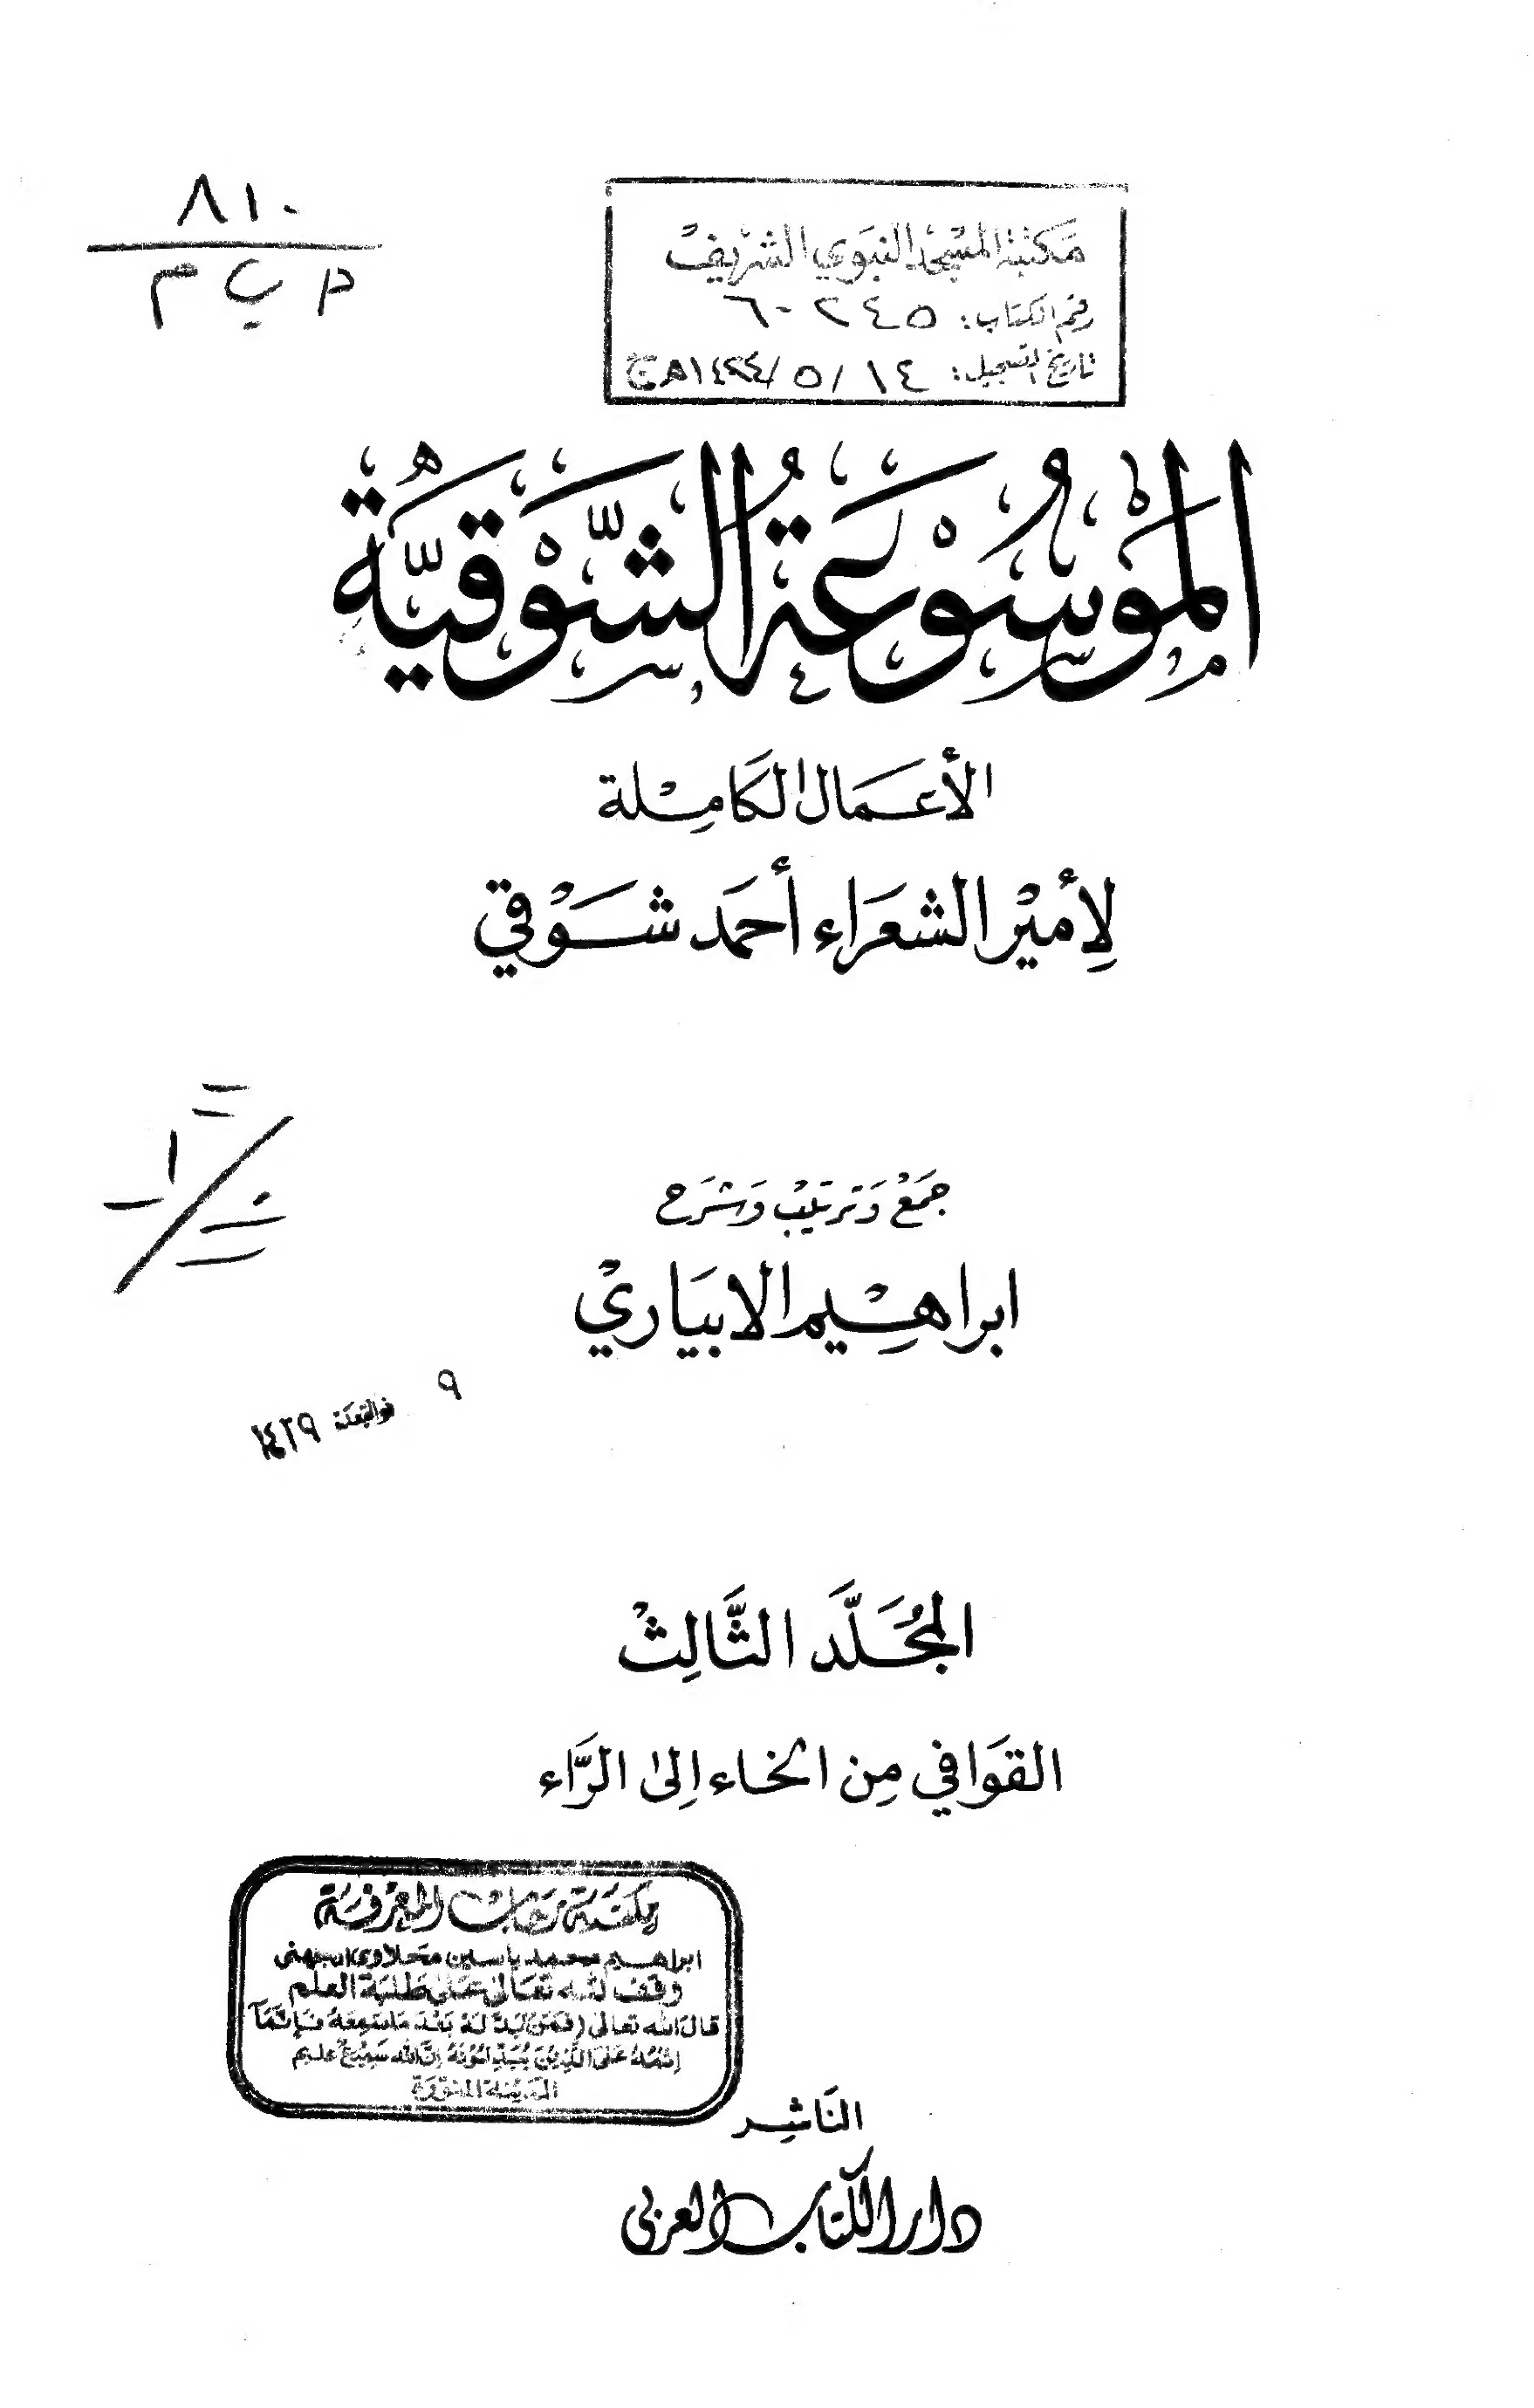 ٨١٠
م ب م
مكتبة المسجد النبوي الشريف
رقم الكتاب: ٦٠٢٤٥
تاريخ التسجيل: ١٤ / ٥ / ١٤٢٤هـ
المَوْسُوْعَةُ الشَّوْقِيَّةُ
الأعمَال الكَامِلة
لِأميْر الشعَراء أحمَد شَوْقي
جَمْع وَترتيْب وَشرَح
ابراهِيْم الابيَاريْ
٩ ذو القعدة ١٤٢٩
المجُلَّد الثَّالِثْ
القوَافي مِن الخاء إلى الرَّاء
مكتبة رحاب المعرفة
ابراهيم محمد ياسين محلاوي الجهني
وقف لله تعالى على طلبة العلم
قال الله تعالى (فمن بدله بعد ما سمعه فإنما
إثمه على الذين يبدلونه إن الله سميع عليم
المدينة المنورة
النَاشِر
دار الكتاب العربي